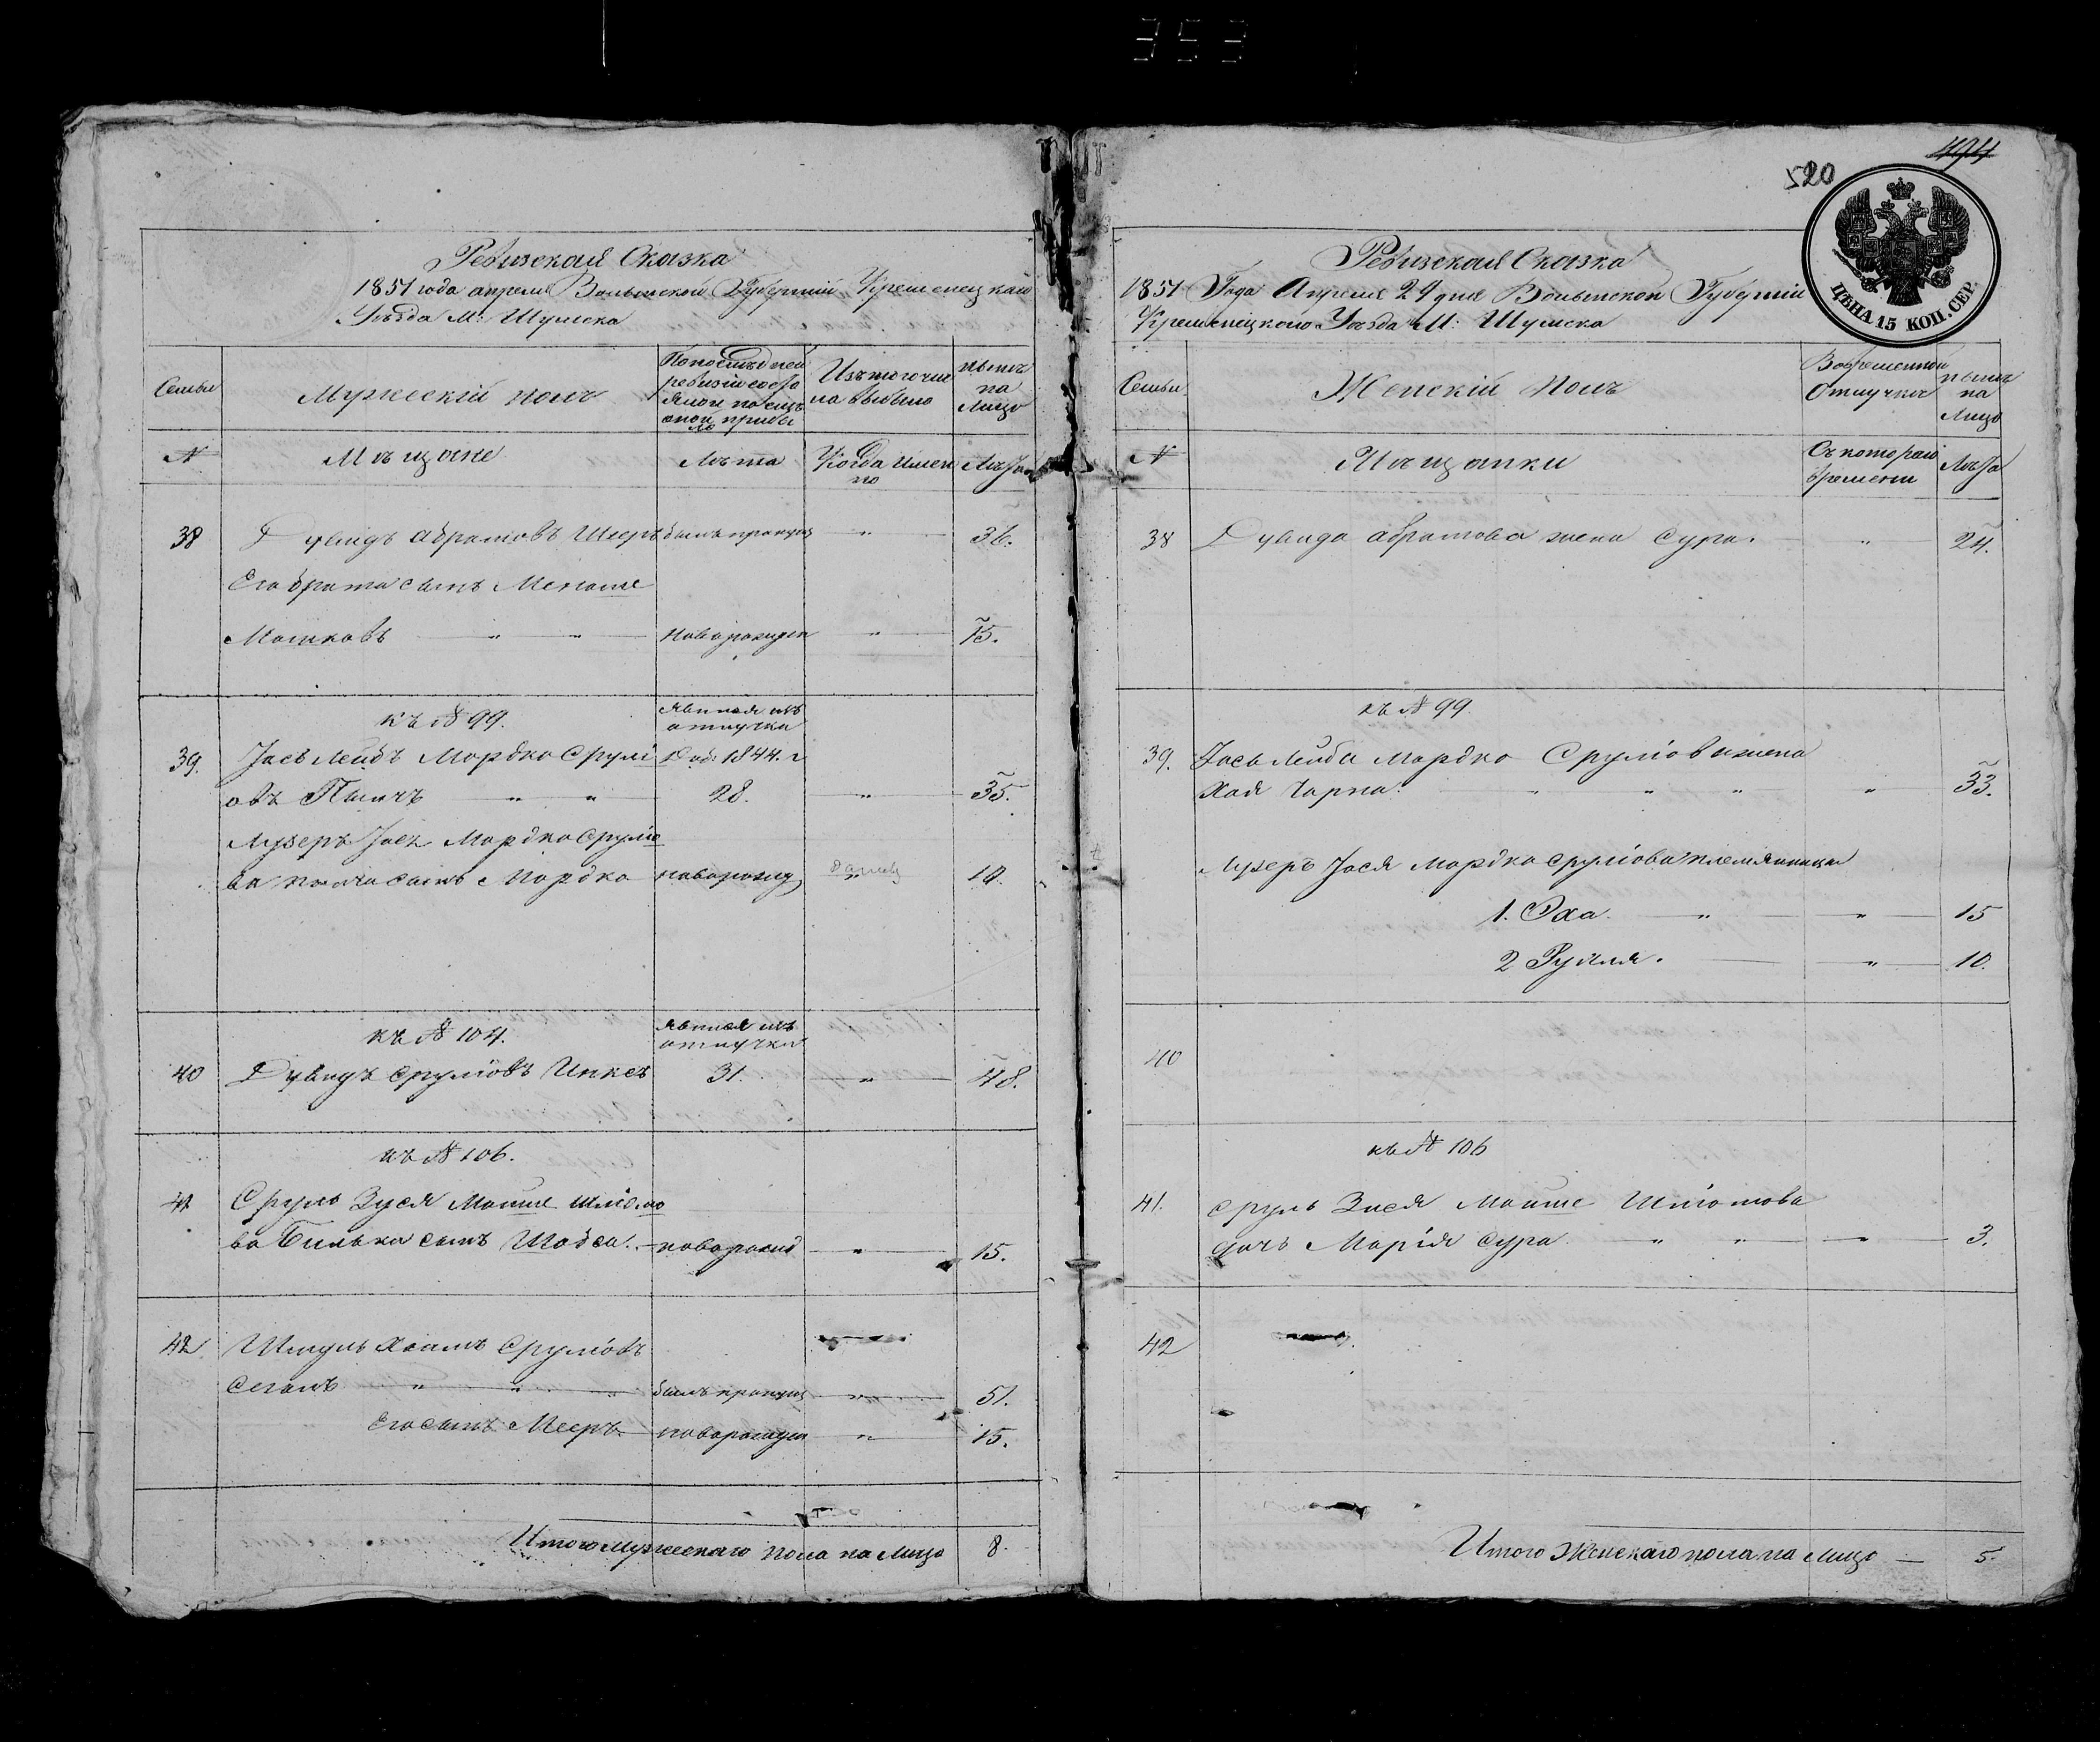 353
Ревизская Сказка
1851 года апреля Волынской Губерніи Кременецкаго
Уѣзда М: Шумска
Семьи
Мужескій полъ
По последней
ревизіи состо
яло и после
оной прибы
ло
Изъ того чис
ла выбыло
нынѣ
на
Лицо
№
Мѣщане
Лѣта
Когда Имен
но
Лѣта
38
Дувидъ Абрамовъ Шееръ былъ пропущ " 36.
Его брата сынъ Менаше
Мошковъ " " новорожден " 15.
къ № 99.
явился изъ
отлучки
39.
Іось Лейбъ Мордко Срулі
1844. г
овъ Пыничъ " " 28. " 35.
Лузеръ Іось Мордко Сруліо
ва сынъ Мордко новорожд " 10.
къ № 104.
явился изъ
отлучки
40 Дувидъ Сруліовъ Инксъ 31. " 48.
къ № 106.
41 Сруль Зуся Мошие Шліомо
ва Билька сынъ Шобса. новорожд " 15.
42 Шмуль Хаимъ Сруліовъ
Сегалъ " " " былъ пропущ " 51.
Его сынъ Мееръ новорожден " 15.
Итого мужескаго пола на Лицо 8.
494
520
ЦѢНА 15 КОП. СЕР.
Ревизская Сказка
1851 Года Апреля 29 дня Волынской Губерніи
Кременецкого Уѣзда М: Шумска
Семьи
Женскій Полъ
Во временной
Отлучки
нынѣ
на
Лицо
№
Мѣщанки
Съ котораго
времени
Лѣта
38 Дувида Абрамова жена Сура. " 24.
къ № 99
39. Іось Лейба Мордко Сруліова жена
Хая Чарна. " " " " 33.
Лузеръ Іося Мордко Сруліова племянницы
1. Эха. " " 15
2 Рухля. " 10.
40
къ № 106
41. Сруль Зися Мошие Шліомова
дочь Марія Сура " " " 3.
42
Итого Женскаго пола на Лицо — 5.